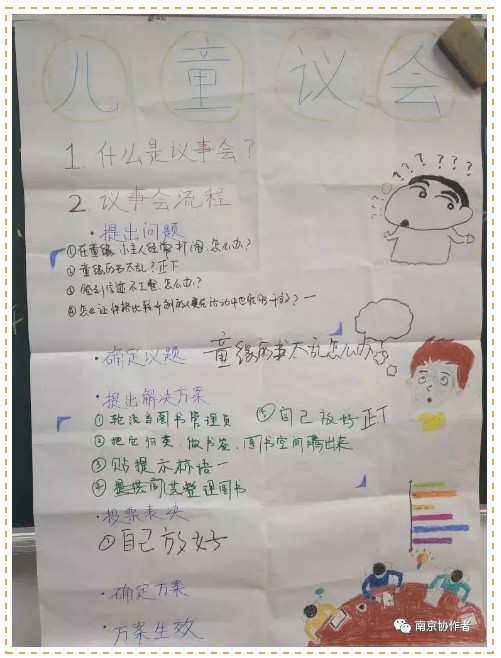 儿童议会
1. 什么是议事会？
2. 议事会流程
·提出问题
①在童缘小主人经常打闹怎么办？
②童缘的书太乱？正下
③签到字迹不工整怎么办？
·确定议题 童缘的书太乱怎么办
·提出解决方案
①轮流当图书管理员
⑤自己放好正下
②把它归类，做书签，图书空间腾出来
③贴提示标语一
④提共同去整理图书
·投票表决
①自己放好
·确定方案
·方案生效
南京协作者